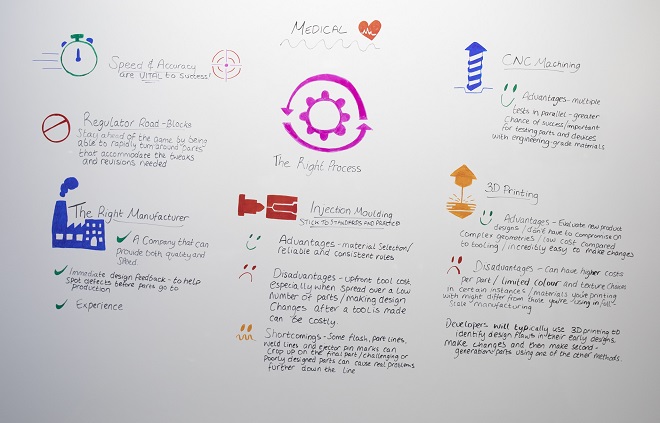 MEDICAL
Speed & Accuracy
are VITAL to success!
Regulator Road-Blocks
Stay ahead of the game by being
able to rapidly turn around parts
that accommodate the tweaks
and revisions needed
The Right Manufacturer
A Company that can
provide both quality and
speed
Immediate design feedback - to help
spot defects before parts go to
production
Experience
The Right Process
Injection Moulding
STICK TO STANDARDS AND PRACTICE
Advantages - material selection/
reliable and consistent rules
Disadvantages - Upfront tool cost
especially when spread over a low
number of parts / making design
changes after a tool is made
can be costly.
Shortcomings - Some flash, part lines,
weld lines and ejector pin marks can
crop up on the final part / challenging or
poorly designed parts can cause real problems
further down the line
CNC Machining
Advantages - multiple
tests in parallel - greater
chance of success / important
for testing parts and devices
with engineering-grade materials
3D Printing
Advantages - Evaluate new product
designs / don't have to compromise on
complex geometries / low cost compared
to tooling / incredibly easy to make changes
Disadvantages - Can have higher costs
per part / limited colour and texture choices
in certain instances / materials you're printing
with might differ from those you're using in full-
scale manufacturing
Developers will typically use 3D printing to
identify design flaws in their early designs,
make changes and then make second-
generation parts using one of the other methods.